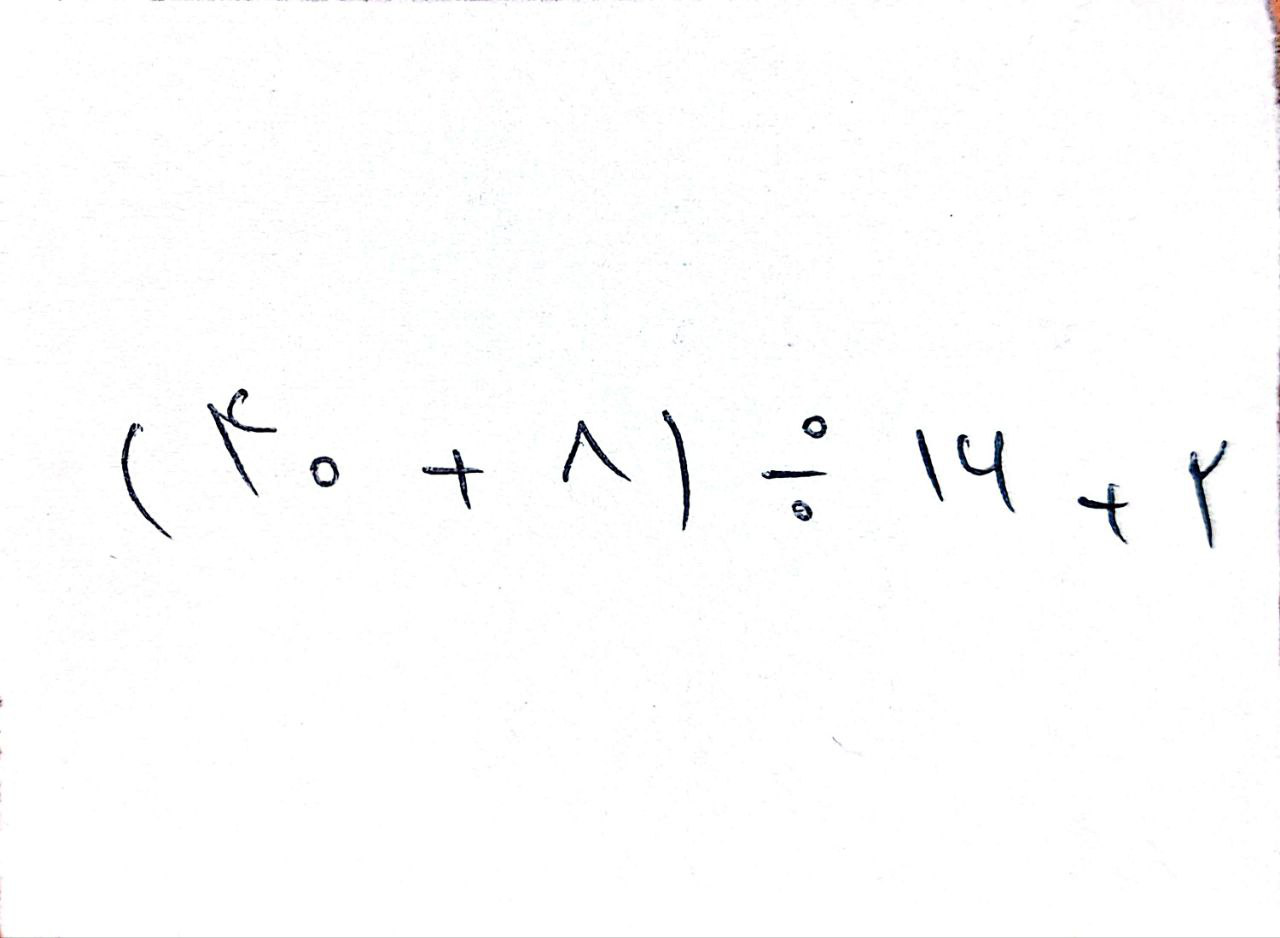 (۴۰ + ۸) ÷ ۱۶ + ۲